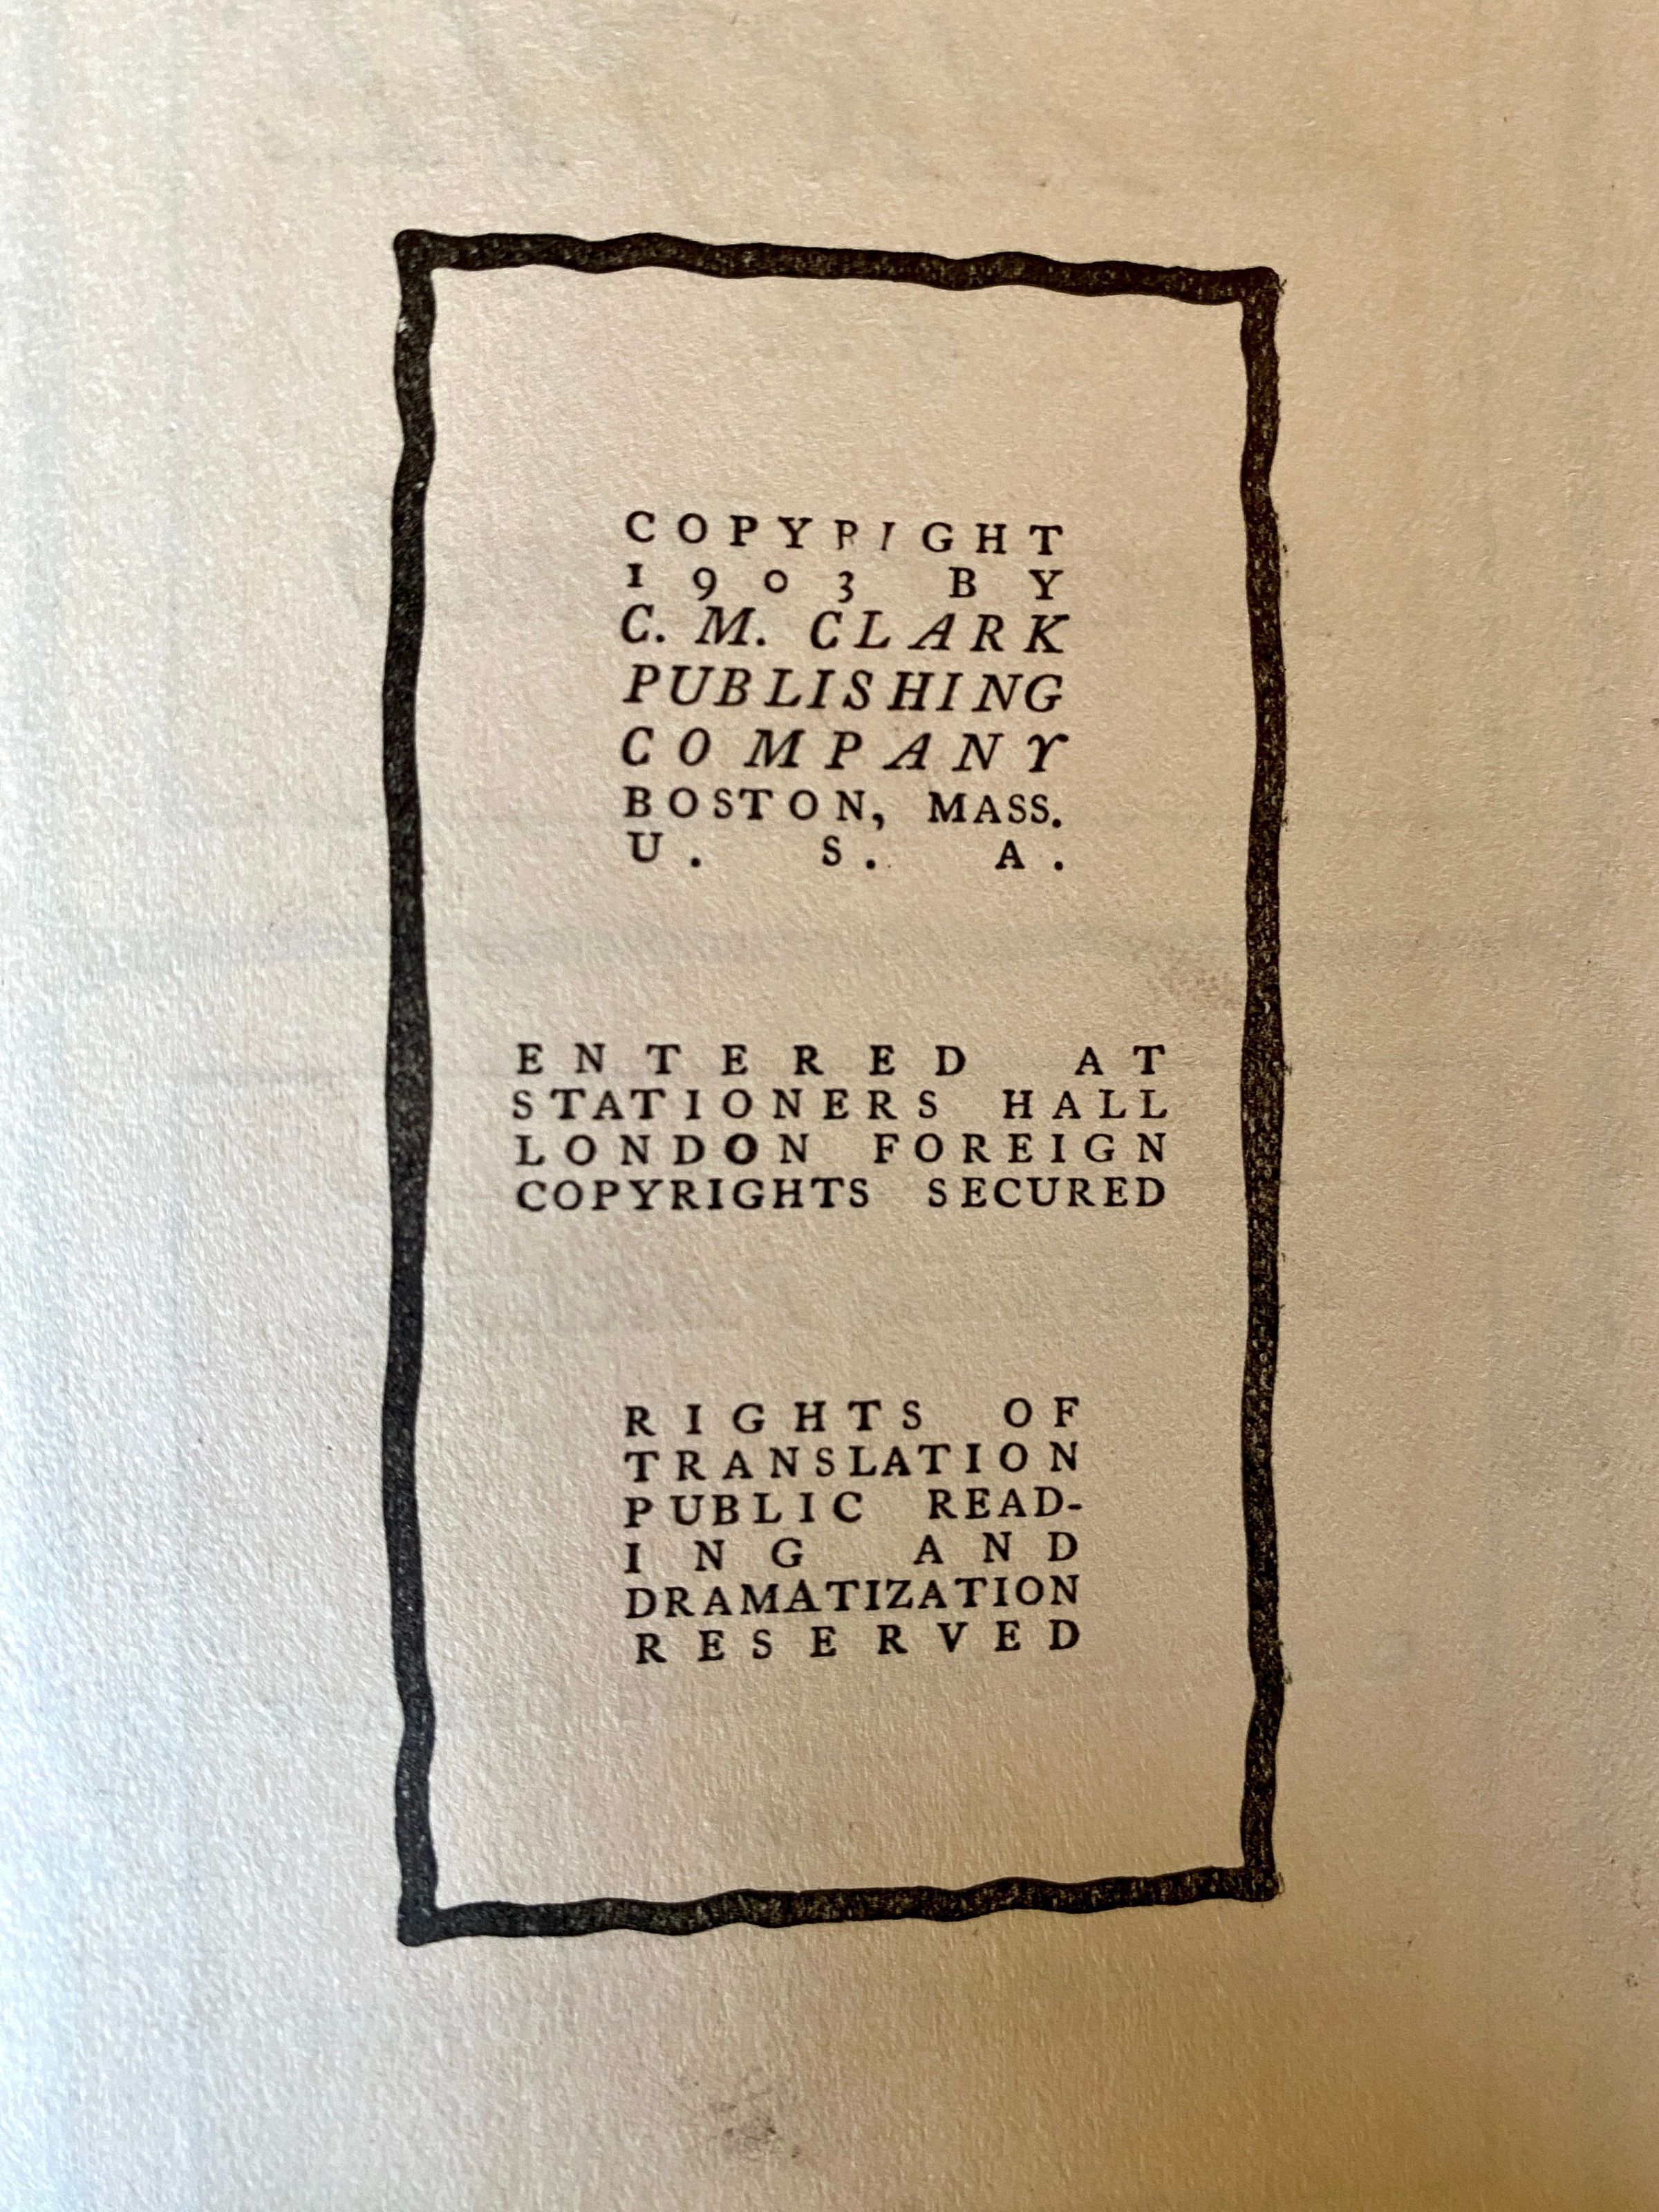 COPYRIGHT
1903 BY
C. M. CLARK
PUBLISHING
COMPANY
BOSTON, MASS.
U. S. A.
ENTERED AT
STATIONERS HALL
LONDON FOREIGN
COPYRIGHTS SECURED
RIGHTS OF
TRANSLATION
PUBLIC READ-
ING AND
DRAMATIZATION
RESERVED